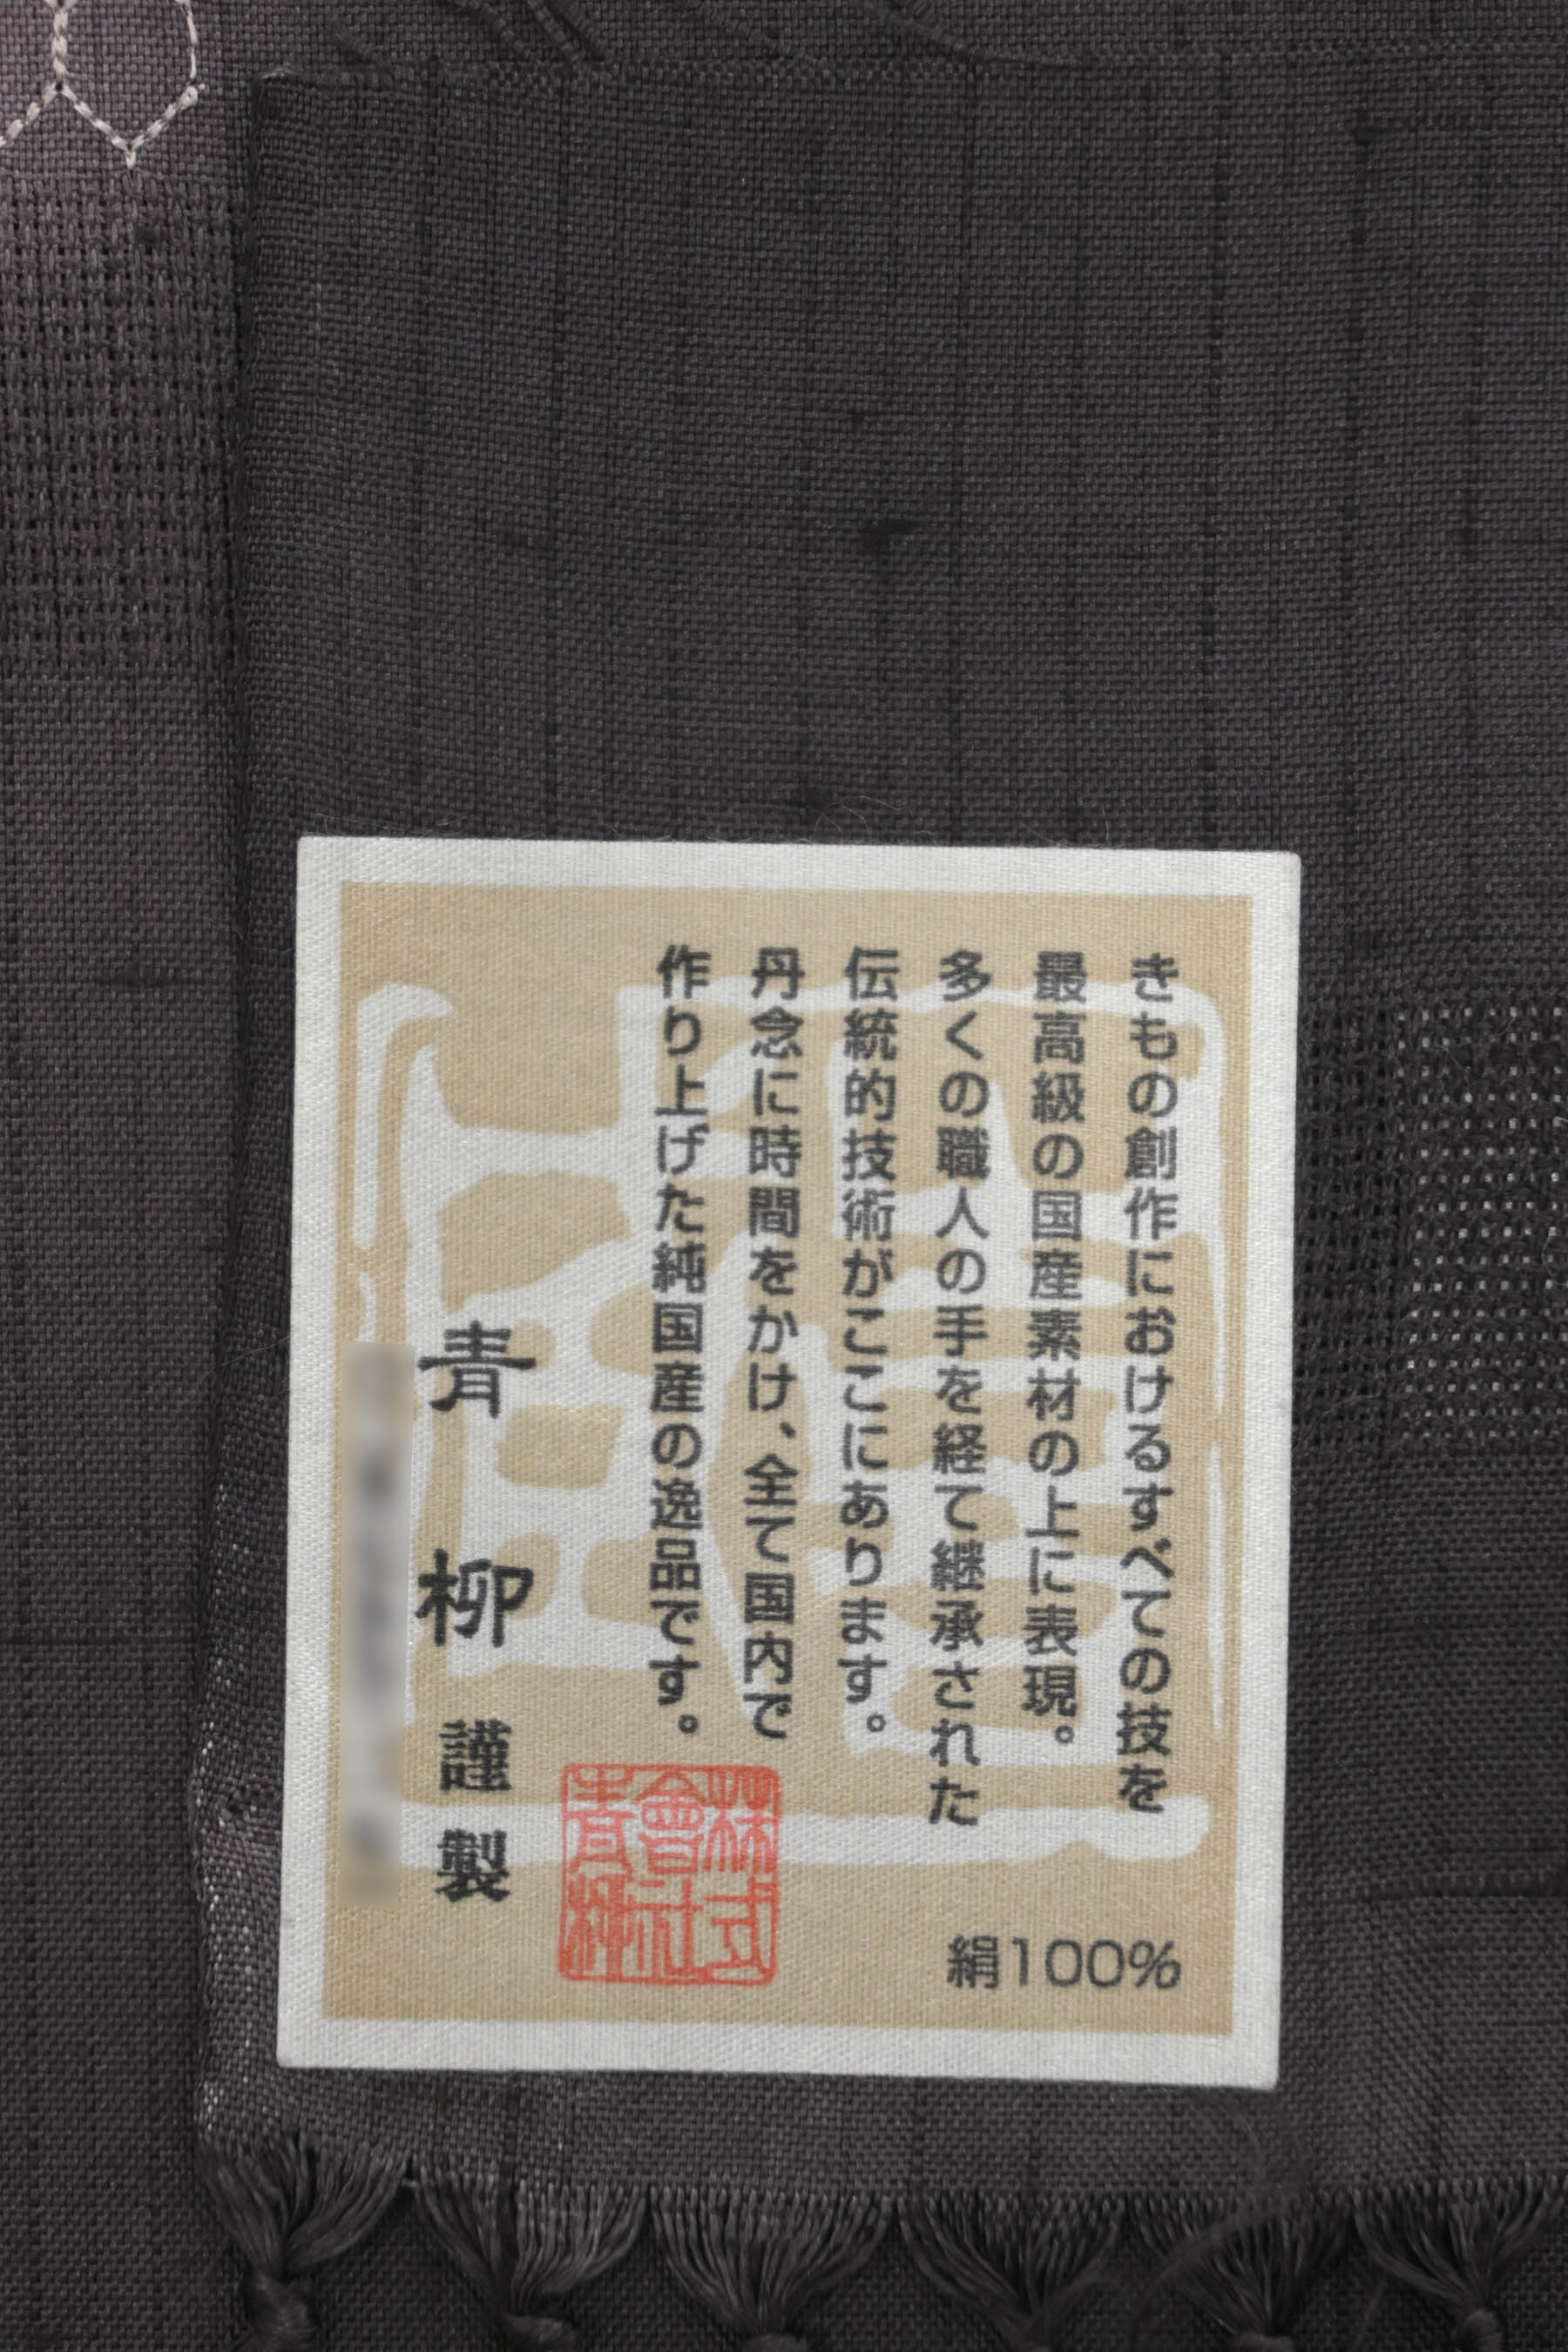 きもの創作におけるすべての技を
最高級の国産素材の上に表現。
多くの職人の手を経て継承された
伝統的技術がここにあります。
丹念に時間をかけ、全て国内で
作り上げた純国産の逸品です。
青柳謹製
株式會社青柳
絹100%